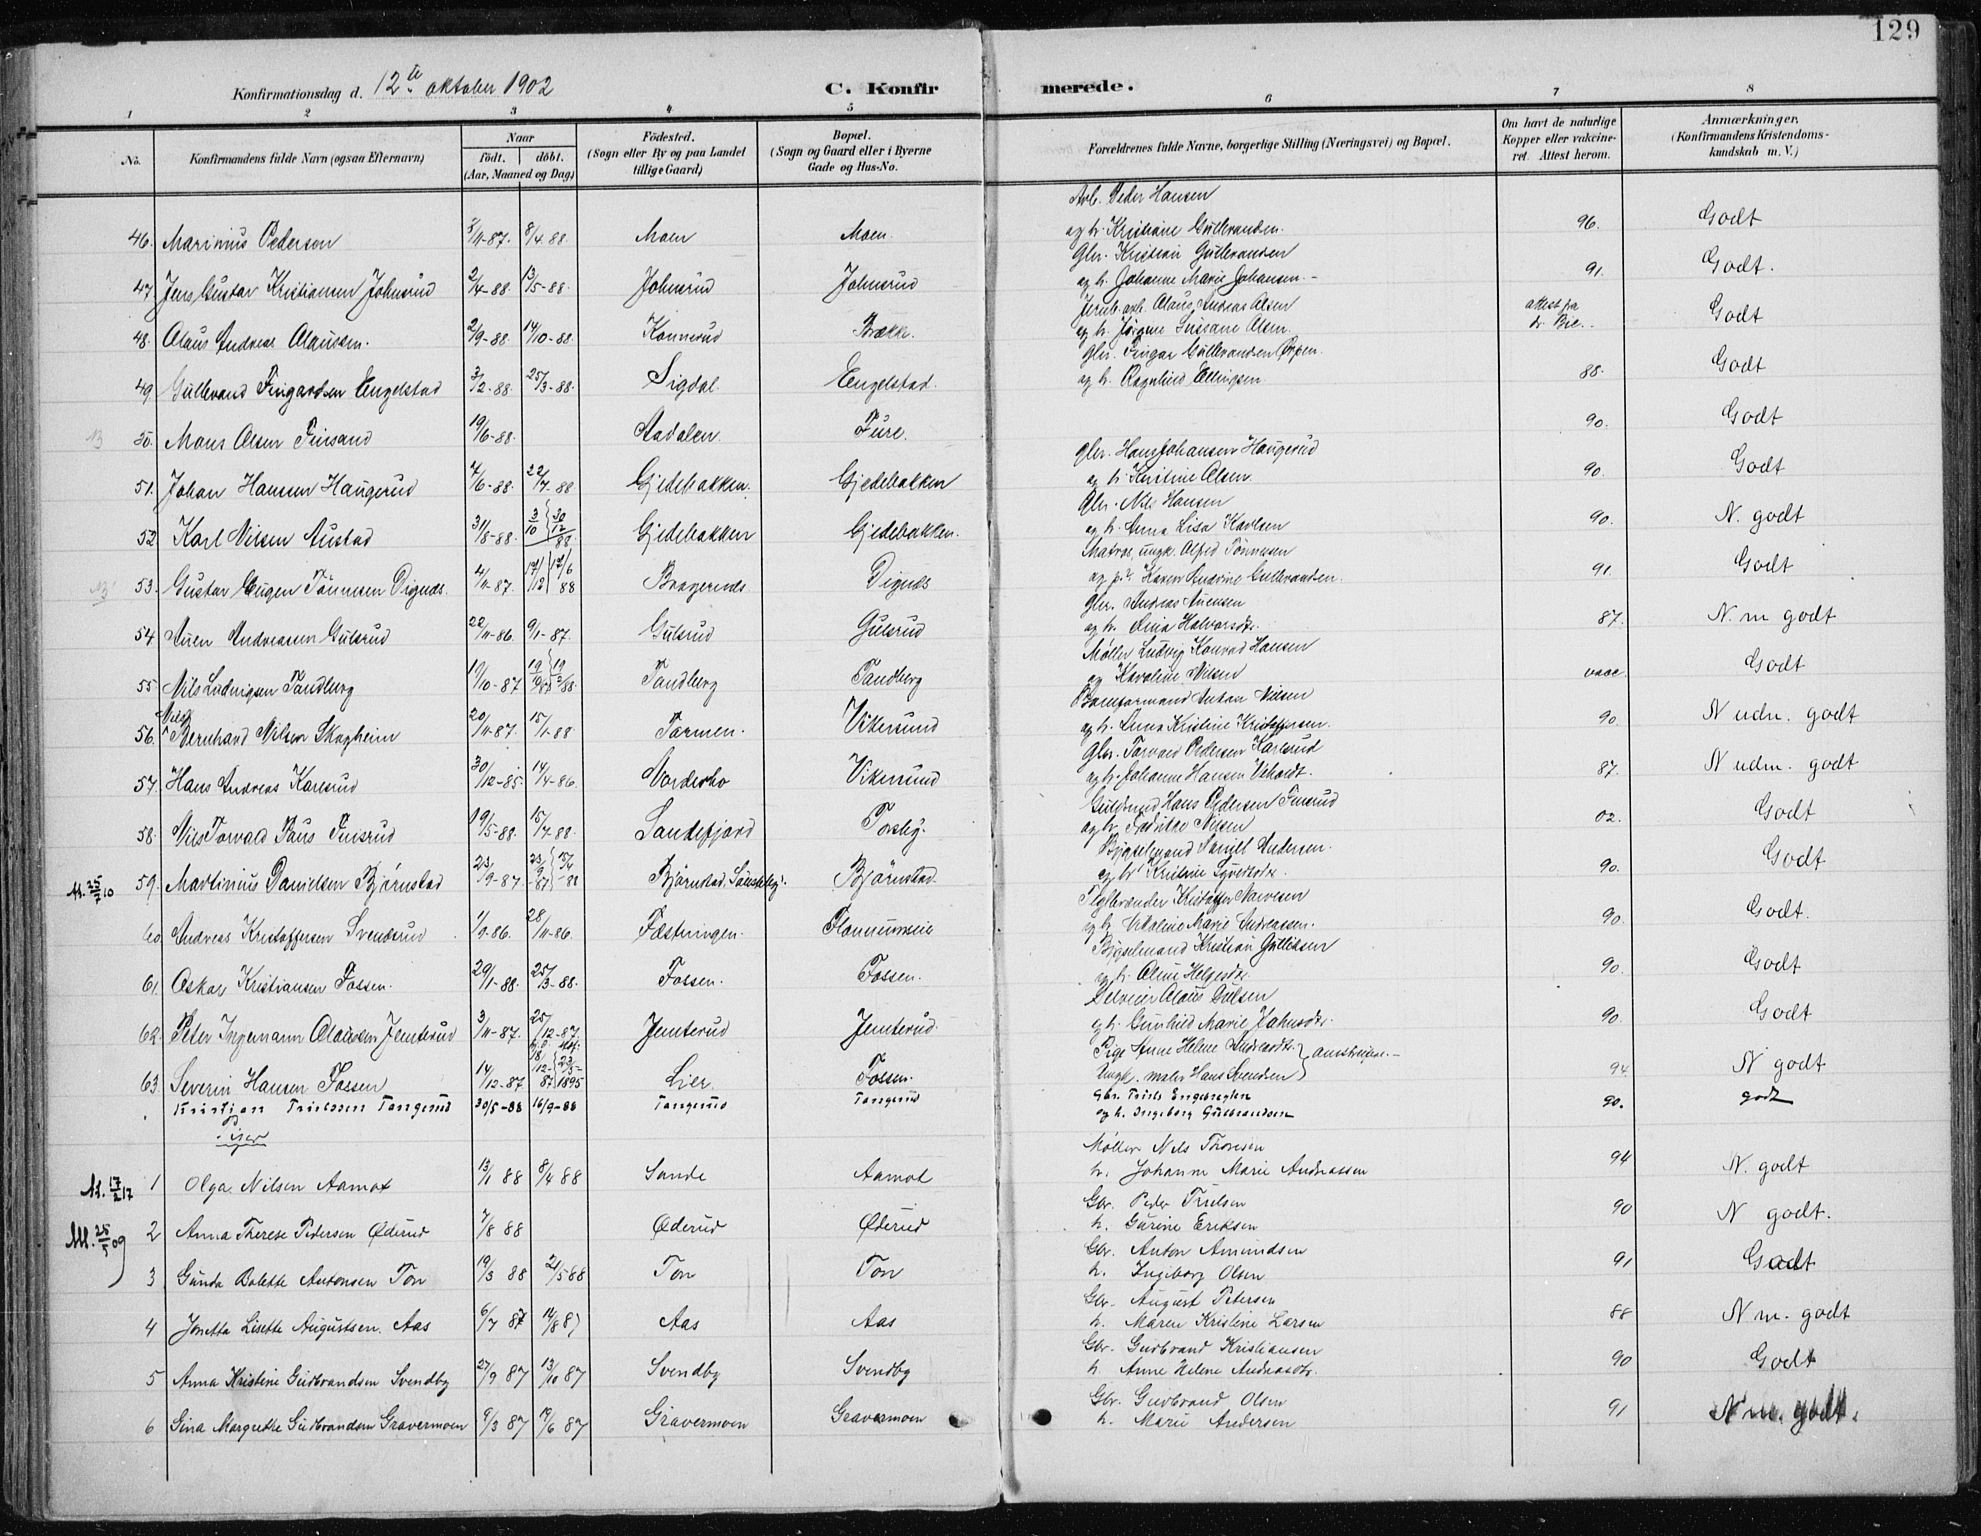 129
Konfirmationsdag d. 12te oktober 1902 C. Konfir merede.
1 2 3 4 5 6 7 8
No. Konfirmandens fulde Navn (ogsaa Efternavn) Naar født. døbt. (Aar, Maaned og Dag) Fødested. (Sogn eller By og paa Landet tillige Gaard) Bopæl. (Sogn og Gaard eller i Byerne Gade og Hus-No. Forældrenes fulde Navne, borgerlige Stilling (Næringsvei) og Bopæl. Om havt de naturlige Kopper eller vakcineret. Attest herom. Anmærkninger. (Konfirmandens Kristendomskundskab m. V.)
Arb. Peder Hansen
46. Marinius Pedersen 3/11-87. 8/4.88 Moen Moen. og h. Kristiane Gulbrandsen. 96. Godt
Gbr. Kristian Gulbrandsen
47 Jens Gustav Kristiansen Johnsrud 2/4-88. 13/5-88. Johnsrud Johnsrud og h. Johanne Marie Johansen.- 91. Godt.
Jernb.arb. Olaus Andreas Olsen
48. Olaus Andreas Olaussen. 2/9-88 14/10-88. Konnerud Brække. og h. Jørgine Olsen. attest fra dr. Bie. Godt
Gbr. Fingar Gulbrandsen
49 Gulbrand Fingardsen Engelstad 3/2-88 25/3-88. Sigdal Engelstad. og h. Ragnhild Ellingsen. 88. Godt
50. Mons Olsen Finsand 19/6-88. Aadalen Fure. 90. Godt
Gbr. Hans Johansen Haugerud
51. Johan Hansen Haugerud 7/6-88. 22/7-88 Gjedebakken. Gjedebakken og h. Kristine Olsen 90. Godt
Gbr. Nils Hansen
52 Karl Nilsen Austad 31/8-88. 3/10 30/12 88 Gjedebakken Gjedebakken. og h. Anna Lisa Karlsen 90. N. godt
Matros ungk. Alfred Tønnesen
53. Gustav Eugen Tønnesen Dignæs. 4/11-87. 17/12 12/6 88 Bragernæs Dignæs og p. Karen Andrine Gulbrandsen. 91. Godt
Gbr. Andreas Auensen
54 Auen Andreasen Gulsrud 22/11-86. 9/1-87. Gulsrud Gulsrud og h. Halvorsdtr. 87. N. m godt
Møller Ludvig Konrad Hansen
55 Nils Ludvigsen Tandberg /10-87 Tandberg Tandberg og Karoline Nilsen vacc. Godt
Bomformand Anton Nilsen
56. Nils Bernhard Nilsen Skogheim 20/11-87. 15/1-88 Tormen. Vikersund og h. Anna Kristine Kristoffersen. 90. N udm. godt
Gbr. Torvald Pedersen Karlsrud
57. Hans Andreas Karlsrud 30/12-85. 14/4-86. Norderho Vikersund og h. Johanne Hansen 87. N udm. godt
Guldsmed Hans Pedersen Finsrud
58. Nils Torvald Paus Finsrud 19/5-88. 15/7-88. Sandefjord Torsby. og h. Fredrikke Nilsen 02. Godt
Bygselmand Daniel Andersen.
M. 25/7 10 59. Martinius Danielsen Bjørnstad 23/9-87. Bjørnstad Bjørnstad og h Kristine 90. Godt
Teglbrænder Kristoffer Narvesen
60. Andreas Kristoffersen Svendsrud 28/11-86. Fæstningen. og h. Marie Andreassen. 90. Godt.
Bygselmand Kristian Gulliksen
61. Oskar Kristiansen Fossen. 29/1-88. 25/3-88. Fossen. Fossen. og h. Oline Helgesdtr. 90. Godt
Selveier Olaus Gulsen
62. Peter Ingemann Olaussen Jemterud 3/11-87. 25/12-87. Jemterud Jemterud. og h. Gunhild Marie 90. Godt
Pige Anne Helene Andreasdtr.
63. Severin Hansen Fossen 14/12-87 18/12-87 23/5-1895 Lier. Fossen. Ungk. maler Hans Svendsen 94. N godt
Gbr. Truls Engebregtsen
Kristian Trulssen Tangerud 20/5-88 16/9-88 Tangerud Tangerud og h. Ingeborg Gulbrandsen 90. godt
Piger
Møller Nils Thoresen
M. 17/2 17 1 Olga Nilsen Aamot 13/1 88 8/4 88 Sande Aamot h. Johanne Marie Andreassen 94 N. godt
Gbr. Peder Trulsen
M. 25/5 09 2 Anna Therese Pedersen Øderud 7/8 88 Øderud Øderud h. Gurine Eriksen 90 N godt.
Gbr. Anton Amundsen
3 Gunda Bolette Antonsen Ton 19/3 88 21/5 88 Ton Ton h. Ingeborg Olsen 91 Godt
Gbr. August Petersen
4 Jonetta Lisette Augustsen Aas 6/7 87 14/8 87 Aas Aas h. Maren Kristine Larsen 88 N m. godt
Gbr. Gudbrand Kristiansen
5 Anna Kristine Gudbrandsen Svendby 27/9 87 13/10 87 Svendby Svendby h Anne Helene Andreasdtr. 90 Godt
Gbr. Gudbrand Olsen
6 Gina Margrethe Gudbrandsen Gravermoen 9/3 87 19/6 87 Gravermoen Gravermoen h. Marie Andersen 91 N m. godt.